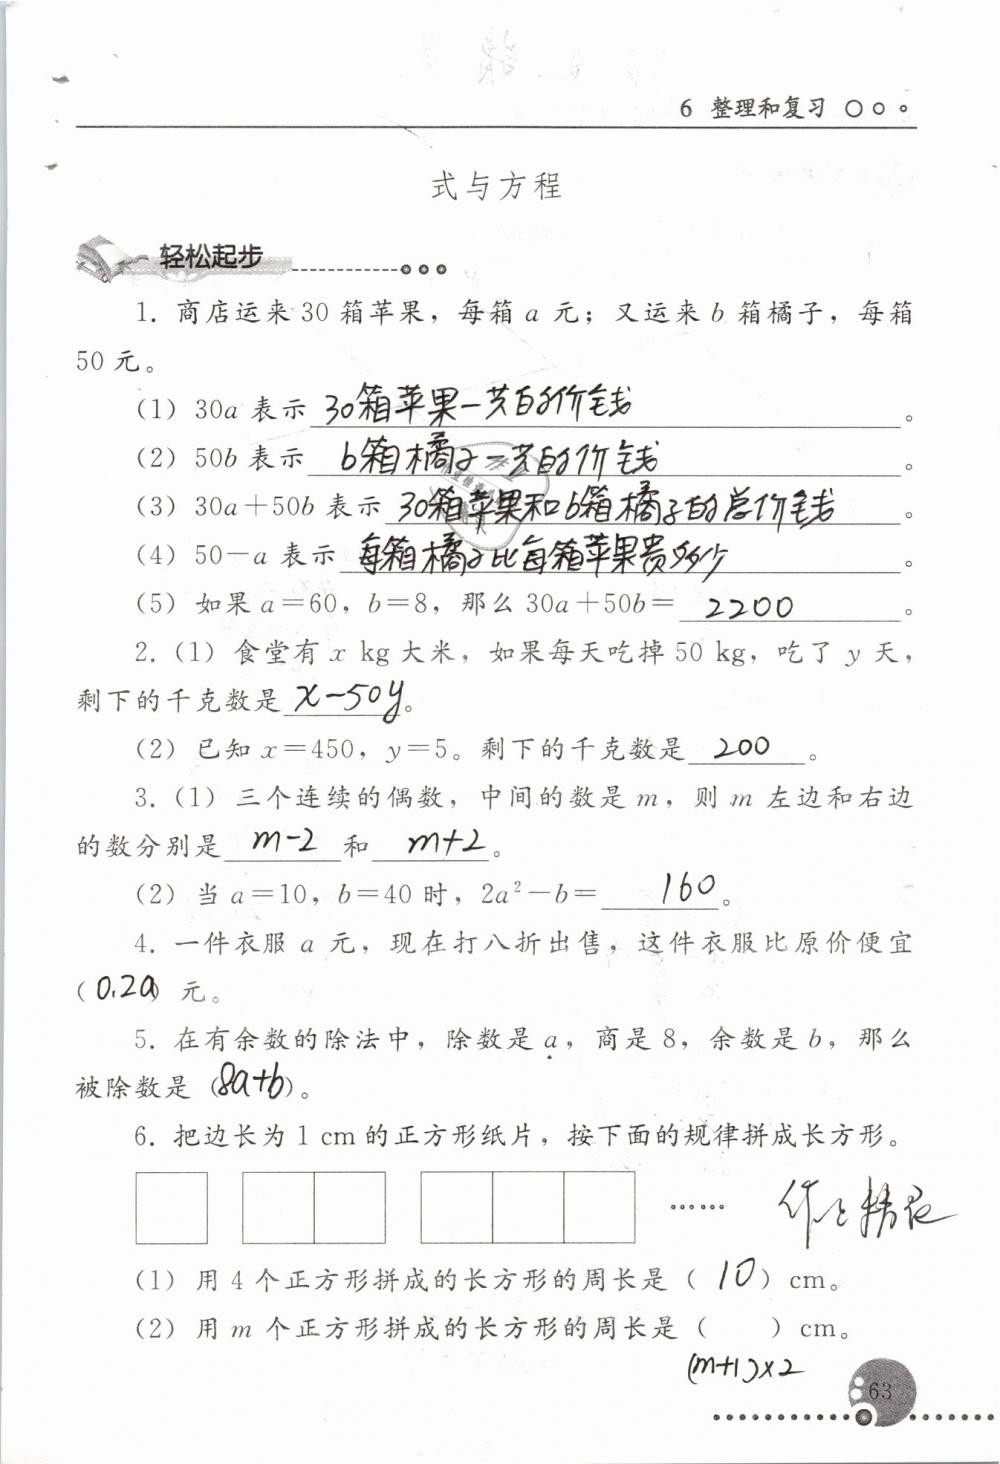 6 整理和复习
式与方程
轻松起步
1. 商店运来 30 箱苹果，每箱 a 元；又运来 b 箱橘子，每箱
50 元。
(1) 30a 表示 30箱苹果一共的价钱。
(2) 50b 表示 b箱橘子一共的价钱。
(3) 30a＋50b 表示 30箱苹果和b箱橘子的总价钱。
(4) 50－a 表示 每箱橘子比每箱苹果贵多少。
(5) 如果 a＝60，b＝8，那么 30a＋50b＝ 2200。
2. (1) 食堂有 x kg 大米，如果每天吃掉 50 kg，吃了 y 天，
剩下的千克数是 x-50y。
(2) 已知 x＝450，y＝5。剩下的千克数是 200。
3. (1) 三个连续的偶数，中间的数是 m，则 m 左边和右边
的数分别是 m-2 和 m+2。
(2) 当 a＝10，b＝40 时，2a²－b＝ 160。
4. 一件衣服 a 元，现在打八折出售，这件衣服比原价便宜
(0.2a) 元。
5. 在有余数的除法中，除数是 a，商是 8，余数是 b，那么
被除数是 (8a+b)。
6. 把边长为 1 cm 的正方形纸片，按下面的规律拼成长方形。
……
(1) 用 4 个正方形拼成的长方形的周长是 ( 10 ) cm。
(2) 用 m 个正方形拼成的长方形的周长是 ( ) cm。
(m+1)×2
63